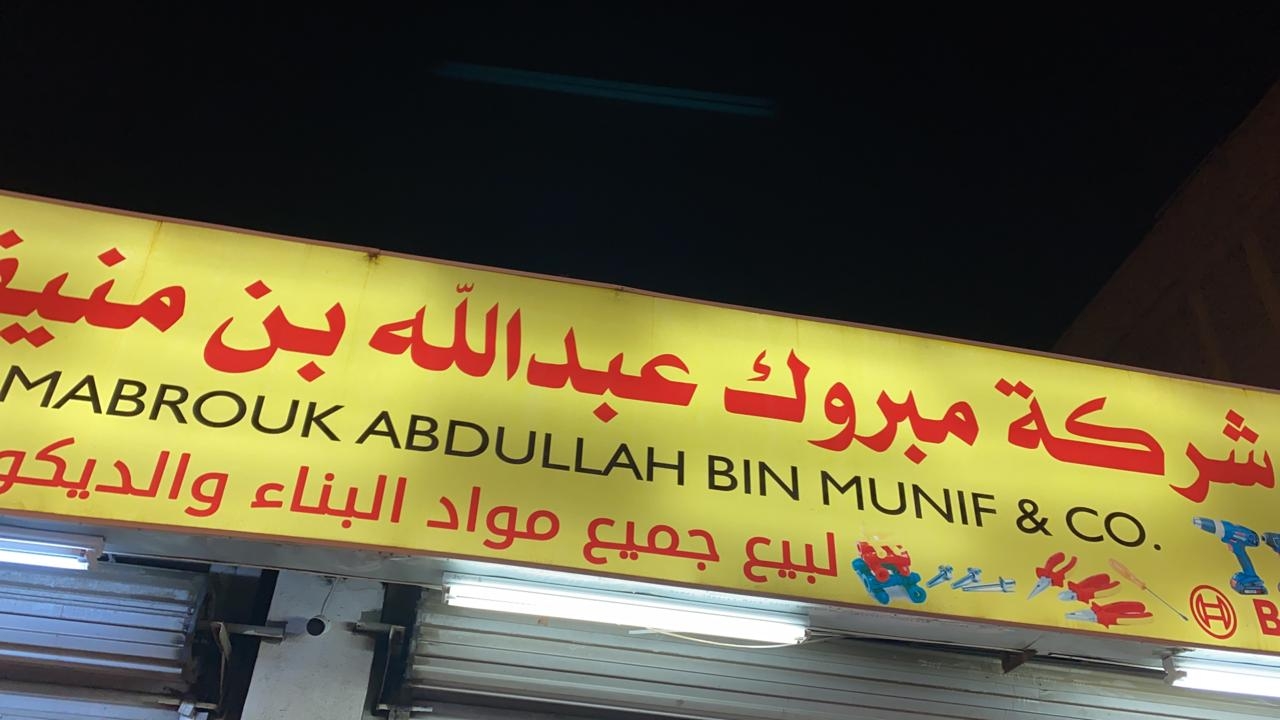 شركة مبروك عبدالله بن منيف
MABROUK ABDULLAH BIN MUNIF & CO.
لبيع جميع مواد البناء والديكو
B